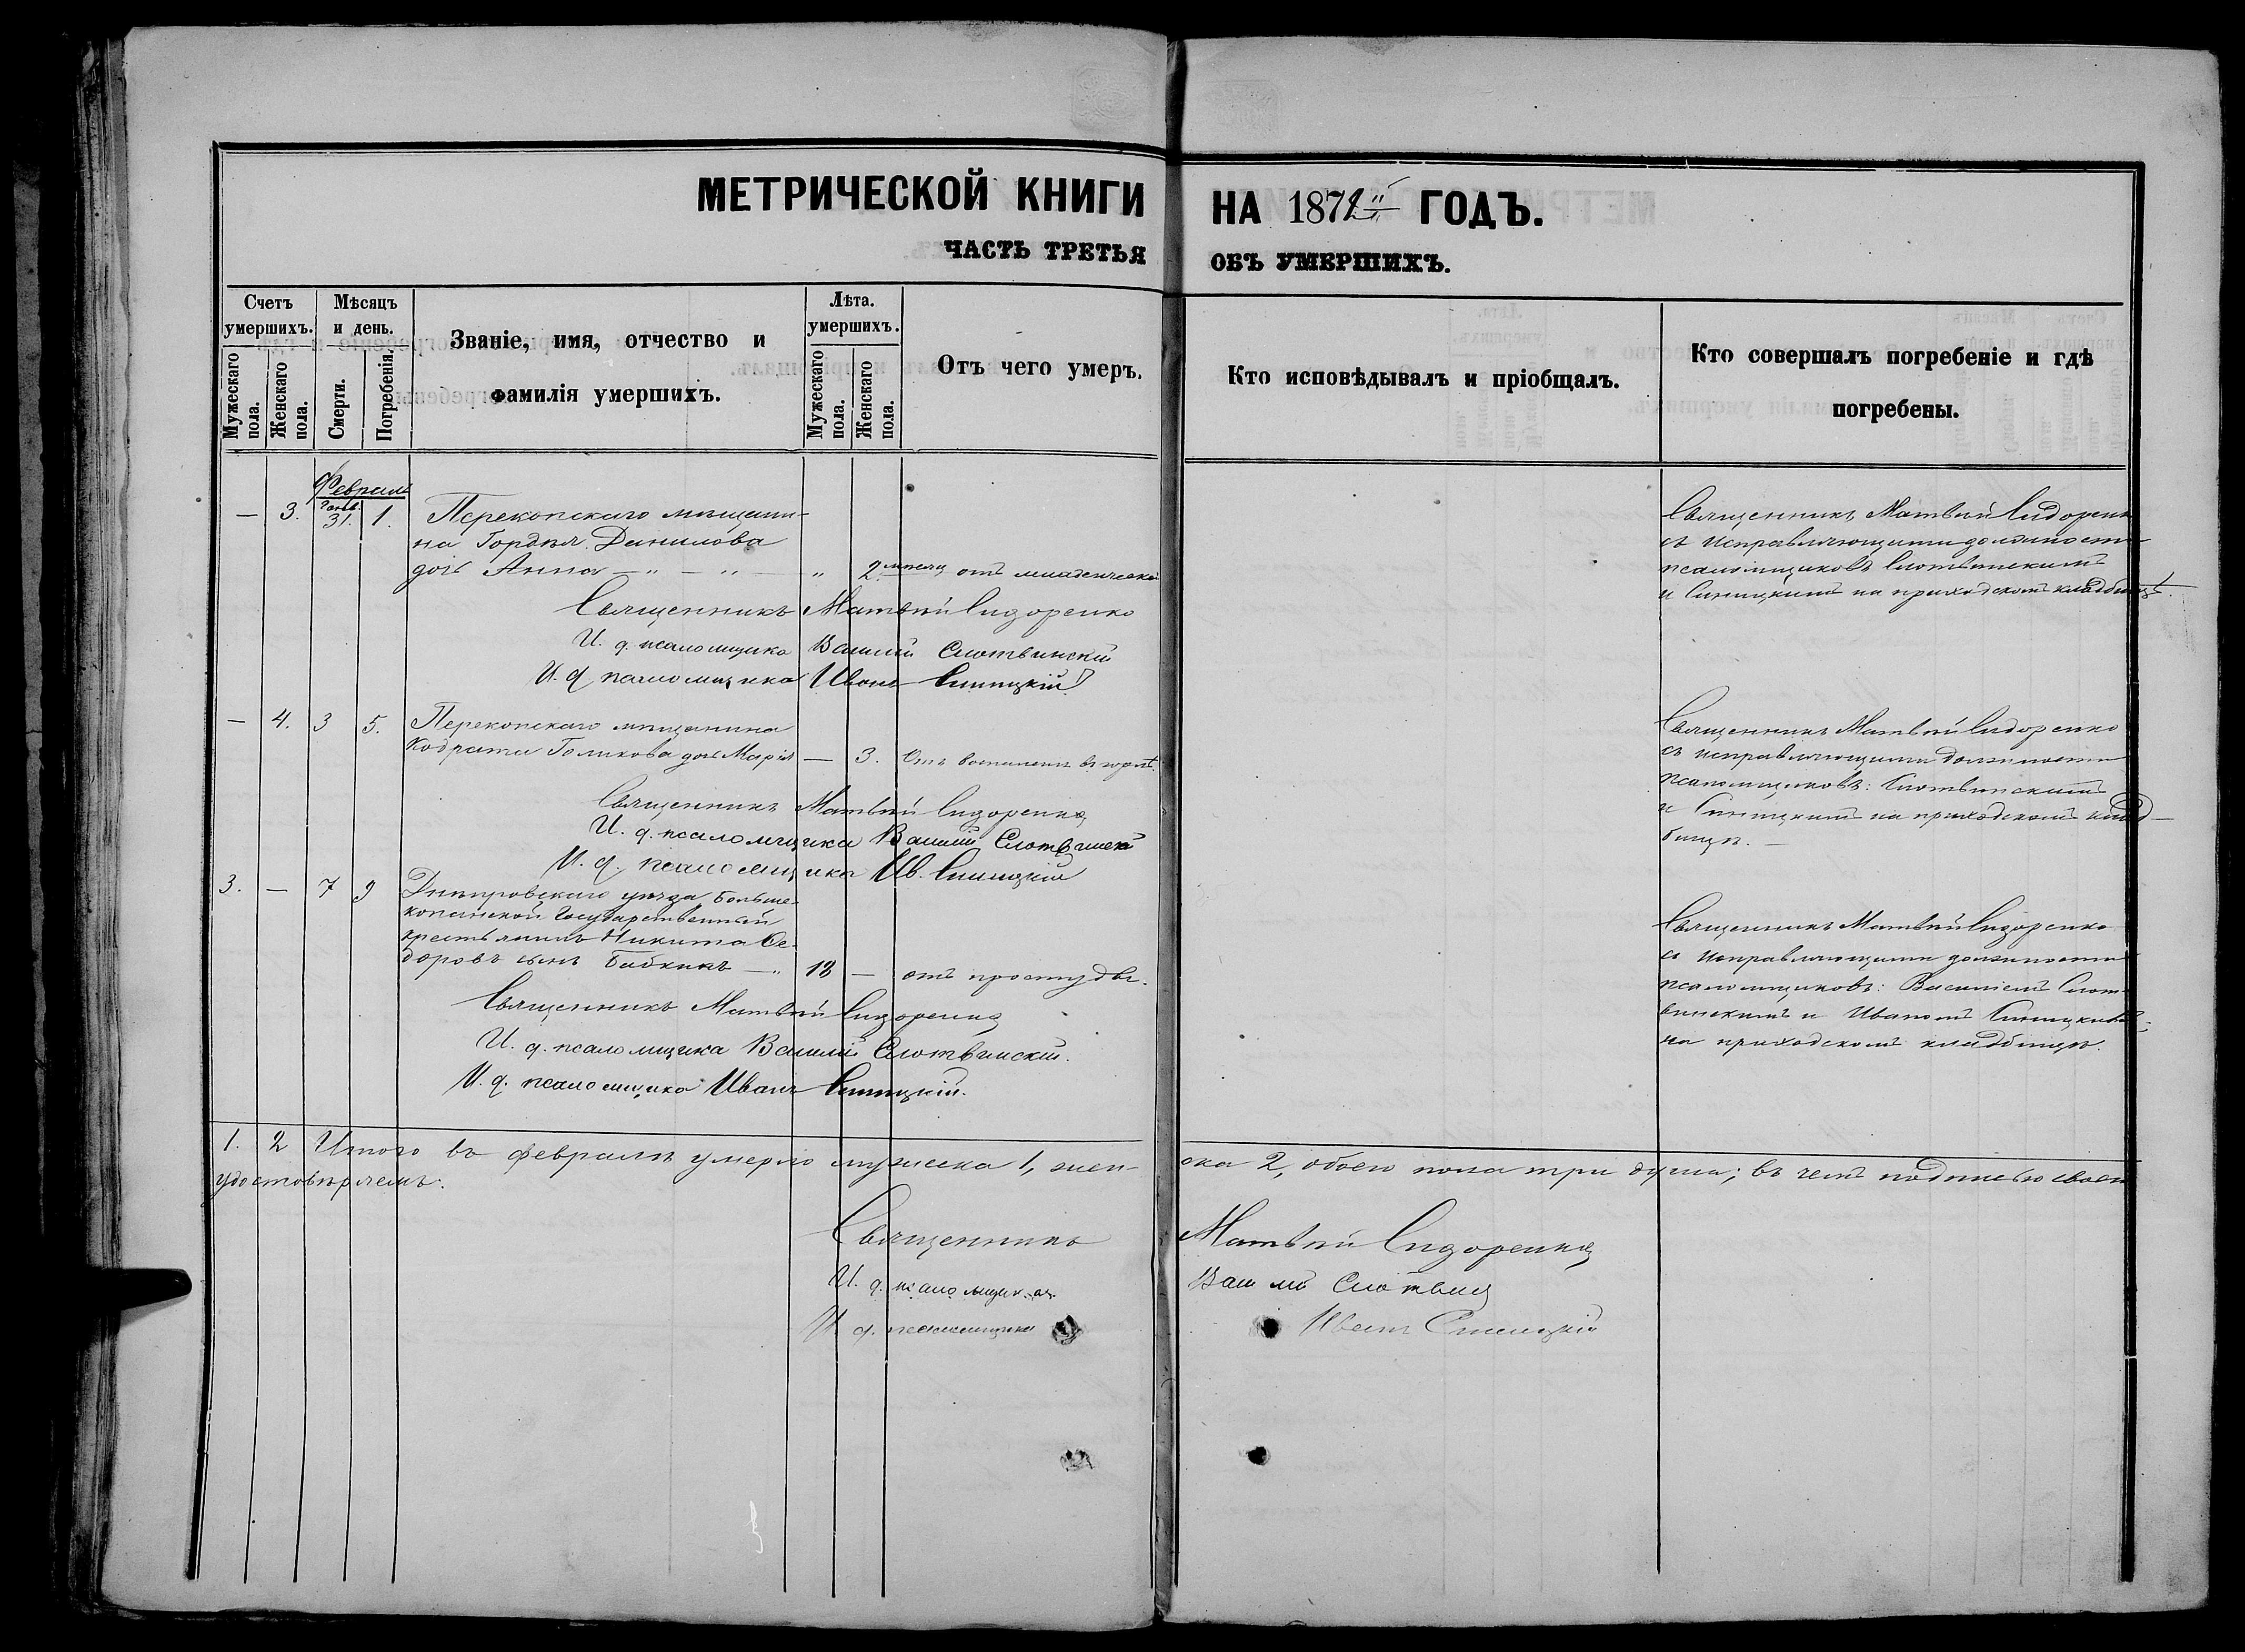 МЕТРИЧЕСКОЙ КНИГИ НА 1872 ГОДЪ.
ЧАСТЬ ТРЕТЬЯ ОБЪ УМЕРШИХЪ.
Счетъ умершихъ.
Мужескаго пола.
Женскаго пола.
Мѣсяцъ и день.
Смерти.
Погребенія.
Званіе, имя, отчество и
фамилія умершихъ.
Лѣта.
умершихъ.
Мужескаго пола.
Женскаго пола.
Отъ чего умеръ.
Кто исповѣдывалъ и пріобщалъ.
Кто совершалъ погребеніе и гдѣ
погребены.
Февраль
— 3. Янв. 31. 1. Перекопскаго мѣщани-
на Гордѣя Данилова
дочь Анна — " — " — " 2 мѣсяц отъ младенческой
Священникъ Матвѣй Сидоренко
с исправляющими должность
псаломщиковъ Слотвинскимъ
и Синицкимъ на приходскомъ кладбищѣ.
Священникъ Матвѣй Сидоренко
И. д. псаломщика Василій Слотвинскій
И. д. псаломщика Иванъ Синицкій
— 4. 3 5. Перекопскаго мѣщанина
Кодрата Голикова дочь Марія — 3. Отъ воспаленія въ горлѣ.
Священникъ Матвѣй Сидоренко
съ исправляющими должность
псаломщиковъ: Слотвинскимъ
и Синицкимъ на приходскомъ клад-
бищѣ. —
Священникъ Матвѣй Сидоренко
И. д. псаломщика Василій Слотвинскій
И. д. псаломщика Ив. Синицкій
3. — 7 9 Днѣпровскаго уѣзда Больше-
копанской Государственный
крестьянинъ Никита Ѳе-
доровъ сынъ Бабкинъ — " 18 — отъ простуды.
Священникъ Матвѣй Сидоренко
съ исправляющими должность
псаломщиковъ: Василіемъ Слот-
винскимъ и Иваномъ Синицкимъ
на приходскомъ кладбищѣ.
Священникъ Матвѣй Сидоренко
И. д. псаломщика Василій Слотвинскій.
И. д. псаломщика Иванъ Синицкій.
1. 2 Итого въ февралѣ умерло мужеска 1, жен-
ска 2, обоего пола три души; въ чемъ подписью своею
удостовѣряемъ.
Священникъ Матвѣй Сидоренко
И. д. псаломщика
И. д. псаломщика Иванъ Синицкій